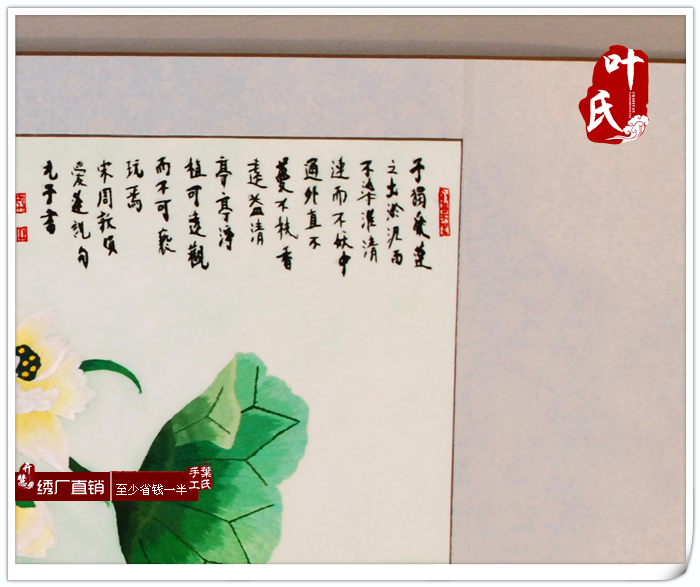 予獨愛蓮
之出淤泥而
不染濯清
漣而不妖中
通外直不
蔓不枝香
遠益清
亭亭淨
植可遠觀
而不可褻
玩焉
宋周敦頤
愛蓮説句
書
叶氏
绣厂直销
至少省钱一半
手工
葉氏